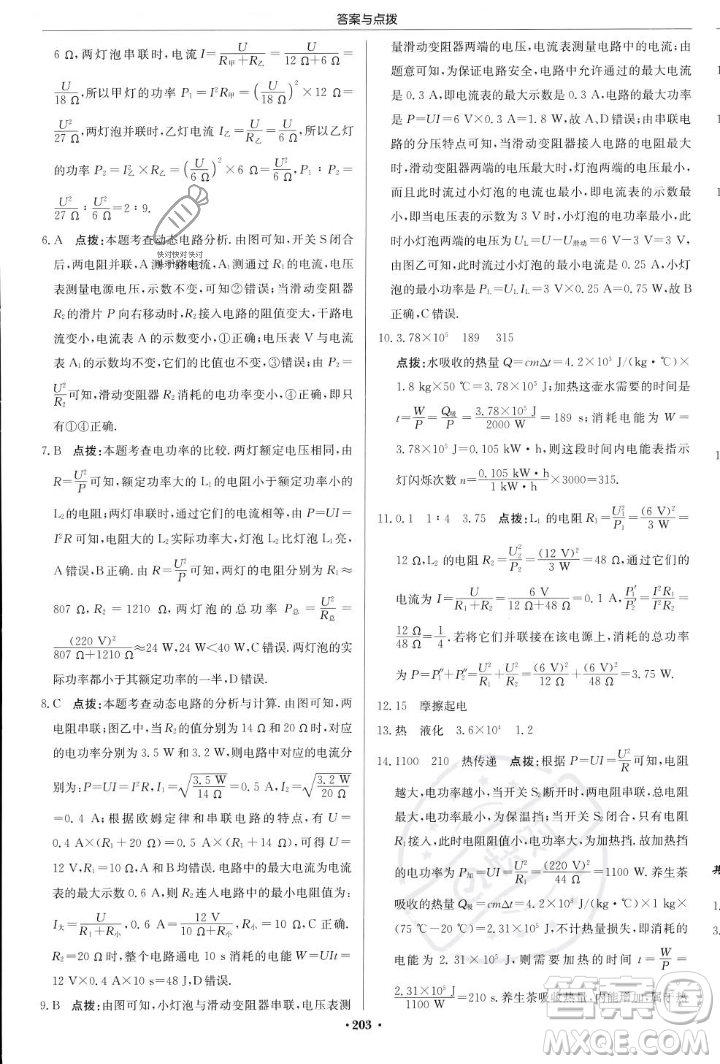 答案与点拨
6 Ω,两灯泡串联时,电流 I=U/(R甲+R乙)=U/(12 Ω+6 Ω)=
U/18 Ω,所以甲灯的功率 P₁=I²R甲=(U/18 Ω)²×12 Ω=
U²/27 Ω;两灯泡并联时,乙灯电流 I乙=U/R乙=U/6 Ω,所以乙灯
功率 P₂=I乙²×R乙=(U/6 Ω)²×6 Ω=U²/6 Ω,P₁∶P₂=
U²/27 Ω∶U²/6 Ω=2∶9.
6.A 点拨:本题考查动态电路分析.由图可知,开关 S 闭合
后,两电阻并联,电流表 A 测干路电流,A₁ 测
表测量电源电压,示数不变,可知②错误;当滑动变阻器
R₂ 的滑片 P 向右移动时,R₂ 的电流变小,干路电
流变小,A 的示数变小,①正确;电压表 V 与电流表
A₁ 的示数均不变,它们的比值也不变,③错误;由 P=
U²/R₂可知,滑动变阻器 R₂ 消耗的电功率变小,④正确,即
只有①④正确.
7.B 点拨:本题考查电功率的比较.两灯额定电压相同,由
R=U²/P可知,额定功率大的 L₁ 的电阻小于额定功率小的
L₂ 的电阻;两灯串联时,通过它们的电流相等,由 P=UI=
I²R 可知,电阻大的 L₂ 实际功率大,所以 L₂ 比 L₁ 亮,
A 错误,B 正确.由 R=U²/P可知,两灯的电阻分别为 R₁≈
807 Ω,R₂=1210 Ω,两灯泡的总功率 P总=U²/R总=
(220 V)²/(807 Ω+1210 Ω)≈24 W,24 W<40 W,C 错误.两灯的实
际功率不是其额定功率的一半,D 错误.
8.C 点拨:本题考查动态电路的分析与计算.由图可知,两
电阻串联;图乙中,当 R₂ 的值分别为 14 Ω 和 20 Ω 时,对应
的电功率分别为 3.5 W 和 3.2 W,则两次电路中的电流分别
为:由 P=UI=I²R 可得 I=√(3.5 W/14 Ω)=0.5 A,I'=√(3.2 W/20 Ω)=
0.4 A;根据欧姆定律和串联电路的电压特点,有:U=
0.5 A×(R₁+14 Ω)=0.4 A×(R₁+20 Ω),解得:U=
12 V,R₁=10 Ω,A 和 B 均错误.电路中的最大电流为电流
表的最大示数 0.6 A,设 R₂ 连入电路中的最小电阻值为 R小,
I大=U/(R₁+R小),0.6 A=12 V/(10 Ω+R小),R小=10 Ω,C 正确.
R₂=20 Ω时,整个电路通电 10 s 消耗的电能 W=UIt=
12 V×0.4 A×10 s=48 J,D 错误.
9.B 点拨:由图甲可知,小灯泡与滑动变阻器串联,电压表测
量滑动变阻器两端的电压,电流表测量电路中的电流;由
题意可知,为保证电路安全,电路中允许通过的最大电流
是 0.3 A,电流表的最大示数是 0.3 A,电路的最大功率
P=UI=6 V×0.3 A=1.8 W,故 A、D 错误;由串联电
路的分压特点可知,当滑动变阻器接入电路的阻值最大
时,滑动变阻器两端的电压最大,灯泡两端的电压最小,
通过灯泡的电流最小,此时电流表的示数最小,灯泡的电
功率最小.因为电压表的示数为 3 V 时,灯泡的功率最
小,此时小灯泡两端的电压 U_L=U−U滑动=6 V−3 V=3 V,
由图乙可知,此时流过小灯泡的电流最小是 0.25 A,小灯
泡的功率最小是 P_L=U_L I=3 V×0.25 A=0.75 W,故 B
正确,C 错误.
10. 3.78×10⁵ 189 315
点拨:水吸收的热量 Q=cmΔt=4.2×10³ J/(kg·℃)×
1.8 kg×50 ℃=3.78×10⁵ J;加热这壶水需要的时间
t=W/P=Q吸/P=3.78×10⁵ J/2000 W=189 s;消耗的电能 W=
3.78×10⁵ J=0.105 kW·h,这段时间内电能表指示
灯闪烁次数 n=0.105 kW·h/1 kW·h×3000=315.
11. 0.1 1∶4 3.75 点拨:L₁ 的电阻 R₁=U₁²/P₁=(6 V)²/3 W=
12 Ω,L₂ 的电阻 R₂=U₂²/P₂=(12 V)²/3 W=48 Ω,L₁ 中的
电流为 I=U/(R₁+R₂)=6 V/(12 Ω+48 Ω)=0.1 A,P₁'/P₂'=I²R₁/I²R₂=
12 Ω/48 Ω=1/4.若将它们并联接在该电源上,消耗的总功率
为 P=P₁''+P₂''=U²/R₁+U²/R₂=(6 V)²/12 Ω+(6 V)²/48 Ω=3.75 W.
12. 15 摩擦起电
13. 热 液化 3.6×10⁴ 1.2
14. 1100 210 热传递 点拨:根据 P=UI=U²/R可知,电阻
越大,电功率越小.当开关 S₁ 闭合、S₂ 断开时,电路电阻
最大,电功率最小,为保温挡;当开关 S₁、S₂ 都闭合时,电阻
R₁ 接入电路,此时电阻值小,电功率最大,为加热挡.加热挡
的电功率为 P加=UI=U²/R₁=(220 V)²/44 Ω=1100 W.养生茶
吸收的热量 Q吸=cmΔt=4.2×10³ J/(kg·℃)×1 kg×
(75 ℃−20 ℃)=2.31×10⁵ J,不计热量损失,消耗的电能
W=Q吸=2.31×10⁵ J,由 P=W/t可得,所用时间 t=W/P=
2.31×10⁵ J/1100 W=210 s.养生茶吸收热量,内能增加,属于热
· 203 ·